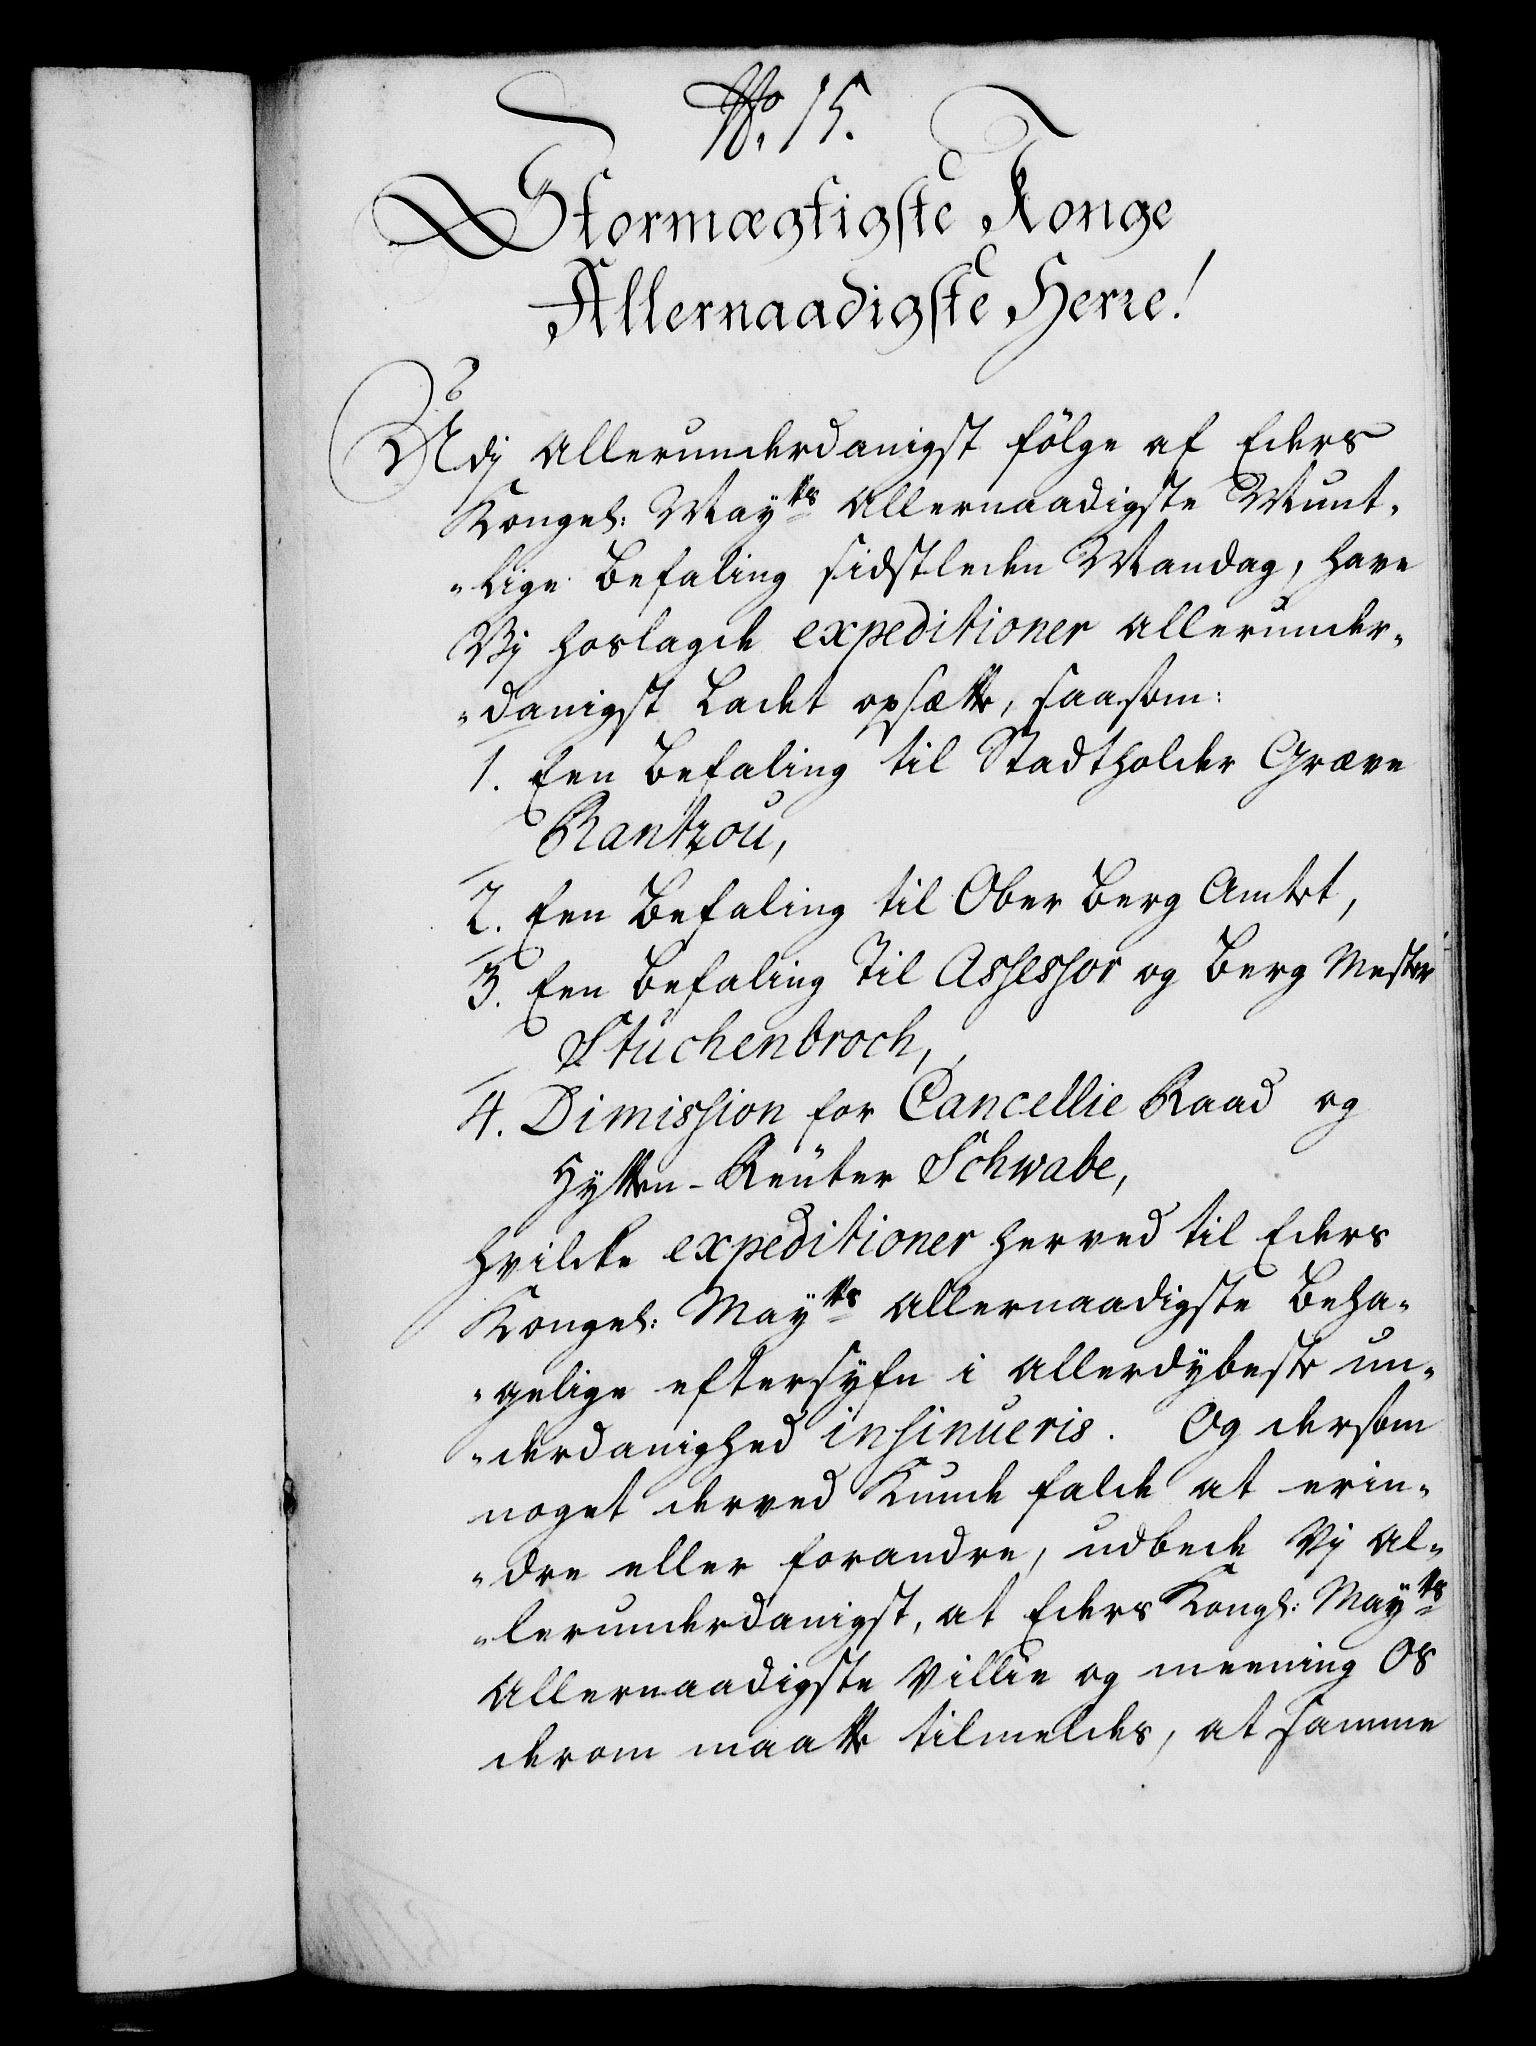 No. 15.
Stormægtigste Konge
Allernaadigste Herre!
Udj Allerunderdanigst fölge af Eders
Kongel: Mayts Allernaadigste Munt-
-lige Befaling sidstleden Mandag, have
Vij hoslagde expeditioner Allerunder-
-danigst Ladet opsætte, saasom:
1. Een Befaling til Stadtholder Græve
Rantzou,
2. Een Befaling til Ober Berg Amtet,
3. Een Befaling Til Assessor og Berg Mester
Stuchenbroch,
4. Dimission for Cancellie Raad og
Hytten-Reuter Schwabe,
Hvilcke expeditioner herved til Eders
Kongel: Mayts Allernaadigste Beha-
-gelige eftersyfn i Allerdybeste un-
-derdanighed insinueris. Og dersom
noget derved Kunde falde at erin-
-dre eller forandre, udbede Vj Al-
-lerunderdanigst, at Eders Kongl: Mayts
Allernaadigste Villie og meening Os
derom maatte tilmeldes, at samme